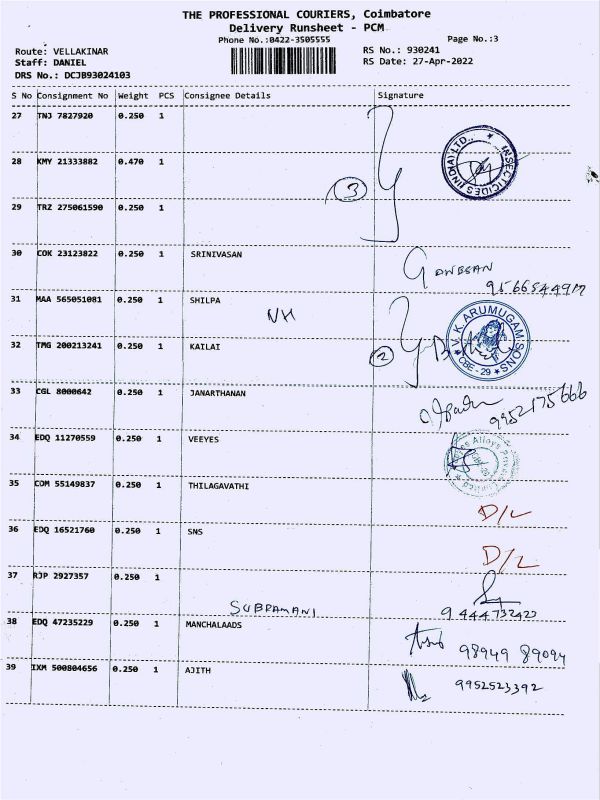 THE PROFESSIONAL COURIERS, Coimbatore
Delivery Runsheet - PCM
Phone No.:0422-3505555 Page No.:3
Route: VELLAKINAR RS No.: 930241
Staff: DANIEL RS Date: 27-Apr-2022
DRS No.: DCJB93024103
S No Consignment No Weight PCS Consignee Details Signature
27 TNJ 7827920 0.250 1
INSECTICIDES (INDIA) LTD.,
28 KMY 21333882 0.470 1
3
29 TRZ 275061590 0.250 1
30 COK 23123822 0.250 1 SRINIVASAN
31 MAA 565051081 0.250 1 SHILPA
NH
V.K. ARUMUGAM SONS
CBE - 29
32 TMG 200213241 0.250 1 KAILAI
2
33 CGL 8000642 0.250 1 JANARTHANAN
9952175666
34 EDQ 11270559 0.250 1 VEEYES
35 COM 55149837 0.250 1 THILAGAVATHI
D/L
36 EDQ 16521760 0.250 1 SNS
D/L
37 RJP 2927357 0.250 1
SUBRAMANI
38 EDQ 47235229 0.250 1 MANCHALAADS
98949 89094
39 IXM 500804656 0.250 1 AJITH
9952523392